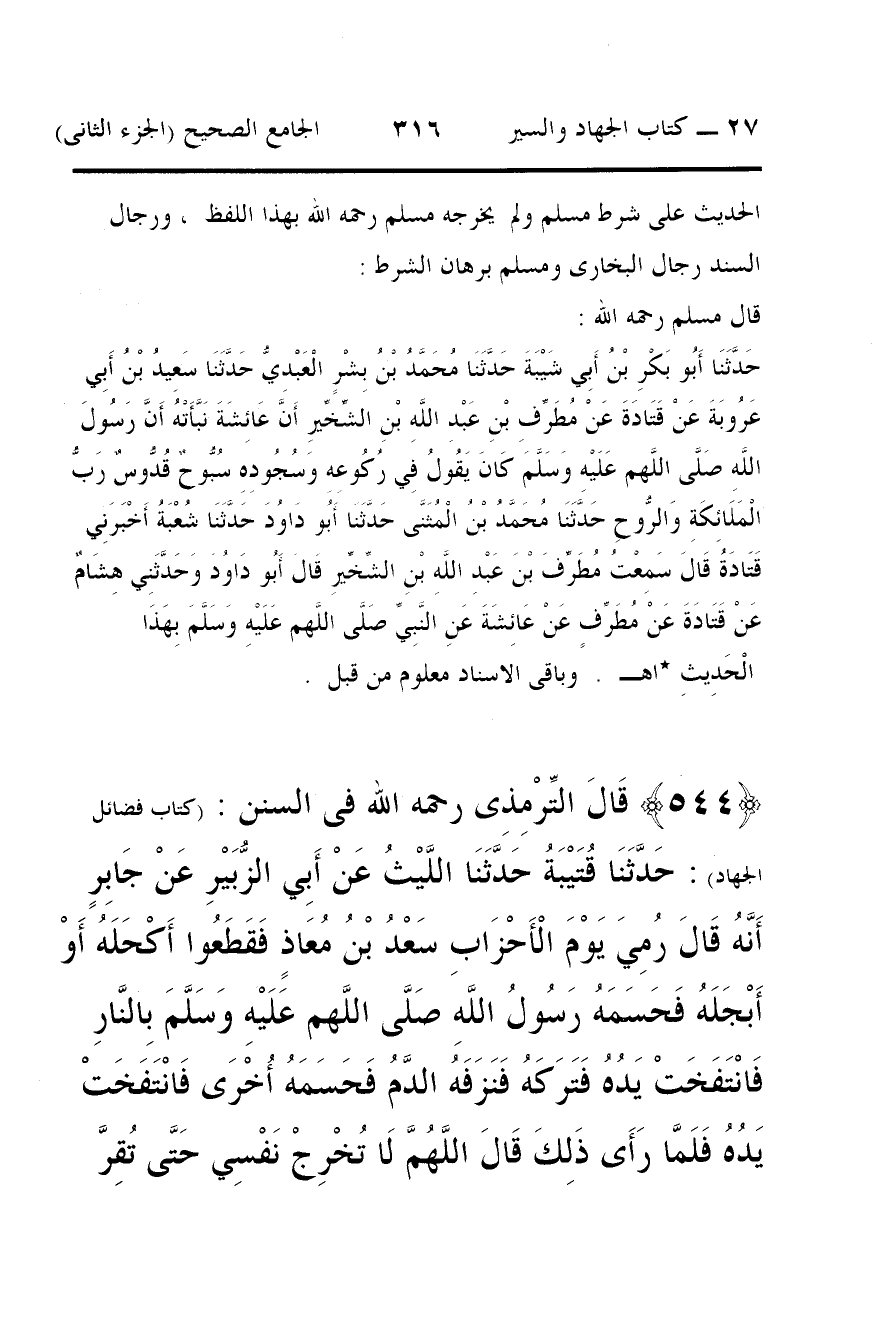 ٢٧ ــ كتاب الجهاد والسير ٣١٦ الجامع الصحيح (الجزء الثانى)
الحديث على شرط مسلم ولم يخرجه مسلم رحمه الله بهذا اللفظ ، ورجال
السند رجال البخارى ومسلم برهان الشرط :
قال مسلم رحمه الله :
حَدَّثَنَا أَبُو بَكْرِ بْنُ أَبِي شَيْبَةَ حَدَّثَنَا مُحَمَّدُ بْنُ بِشْرٍ الْعَبْدِيُّ حَدَّثَنَا سَعِيدُ بْنُ أَبِي
عَرُوبَةَ عَنْ قَتَادَةَ عَنْ مُطَرِّفِ بْنِ عَبْدِ اللَّهِ بْنِ الشِّخِّيرِ أَنَّ عَائِشَةَ نَبَّأَتْهُ أَنَّ رَسُولَ
اللَّهِ صَلَّى اللهم عَلَيْهِ وَسَلَّمَ كَانَ يَقُولُ فِي رُكُوعِهِ وَسُجُودِهِ سُبُّوحٌ قُدُّوسٌ رَبُّ
الْمَلَائِكَةِ وَالرُّوحِ حَدَّثَنَا مُحَمَّدُ بْنُ الْمُثَنَّى حَدَّثَنَا أَبُو دَاوُدَ حَدَّثَنَا شُعْبَةُ أَخْبَرَنِي
قَتَادَةُ قَالَ سَمِعْتُ مُطَرِّفَ بْنَ عَبْدِ اللَّهِ بْنِ الشِّخِّيرِ قَالَ أَبُو دَاوُدَ وَحَدَّثَنِي هِشَامٌ
عَنْ قَتَادَةَ عَنْ مُطَرِّفٍ عَنْ عَائِشَةَ عَنِ النَّبِيِّ صَلَّى اللهم عَلَيْهِ وَسَلَّمَ بِهَذَا
الْحَدِيثِ *اهــ . وباقى الاسناد معلوم من قبل .
﴿٥٤٤﴾ قَالَ التِّرْمِذِى رحمه الله فى السنن : (كتاب فضائل
الجهاد) : حَدَّثَنَا قُتَيْبَةُ حَدَّثَنَا اللَّيْثُ عَنْ أَبِي الزُّبَيْرِ عَنْ جَابِرٍ
أَنَّهُ قَالَ رُمِيَ يَوْمَ الْأَحْزَابِ سَعْدُ بْنُ مُعَاذٍ فَقَطَعُوا أَكْحَلَهُ أَوْ
أَبْجَلَهُ فَحَسَمَهُ رَسُولُ اللَّهِ صَلَّى اللهم عَلَيْهِ وَسَلَّمَ بِالنَّارِ
فَانْتَفَخَتْ يَدُهُ فَتَرَكَهُ فَنَزَفَهُ الدَّمُ فَحَسَمَهُ أُخْرَى فَانْتَفَخَتْ
يَدُهُ فَلَمَّا رَأَى ذَلِكَ قَالَ اللَّهُمَّ لَا تُخْرِجْ نَفْسِي حَتَّى تُقِرَّ